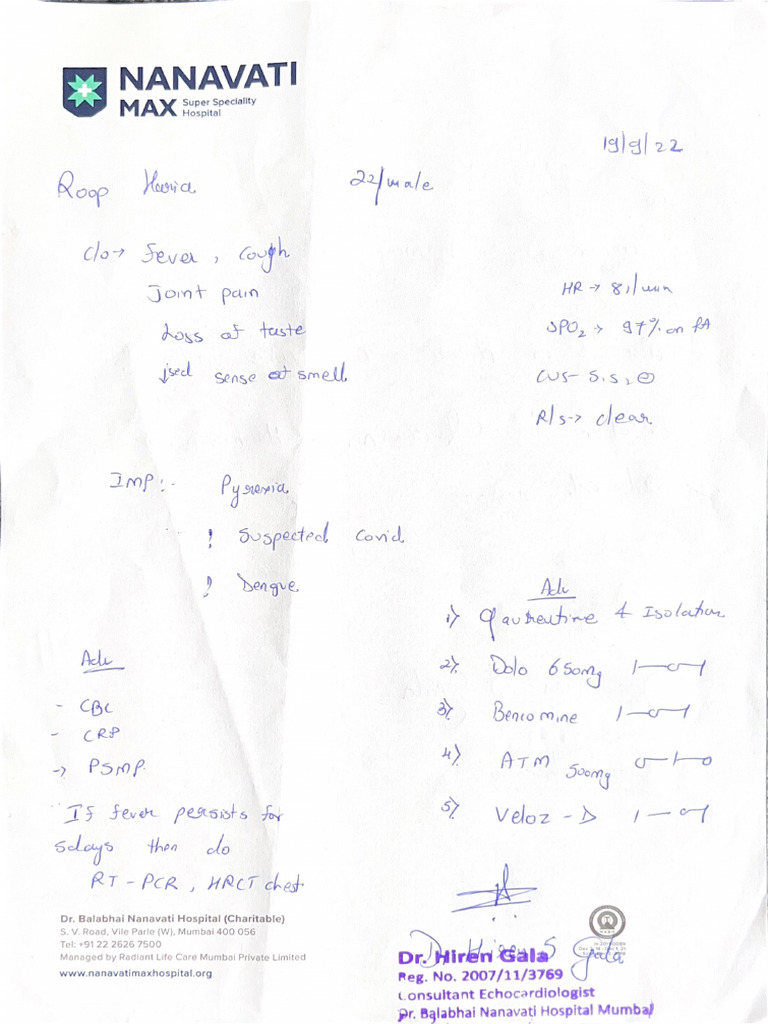 NANAVATI
MAX Super Speciality Hospital
19/9/22
Roop Haria 22/male
C/o → Fever, Cough
Joint pain
Loss of taste
↓sed sense of smell
HR → 81/min
SPO2 → 97% on RA
CVS - S1S2
R/s → clear
Imp:- Pyrexia
? Suspected Covid
? Dengue
Adv
- CBC
- CRP
→ PSMP
If fever persists for
5days then do
RT-PCR, HRCT chest
Adv
1) Quarantine & Isolation
2) Dolo 650mg 1-0-1
3) 1-0-1
4) ATM 500mg 0-1-0
5) Veloz-D 1-0-1
Dr. Balabhai Nanavati Hospital (Charitable)
S. V. Road, Vile Parle (W), Mumbai 400 056
Tel: +91 22 2626 7500
Managed by Radiant Life Care Mumbai Private Limited
www.nanavatimaxhospital.org
Dr. Hiren S Gala
Dr. Hiren Gala
Reg. No. 2007/11/3769
Consultant Echocardiologist
Dr. Balabhai Nanavati Hospital Mumbai